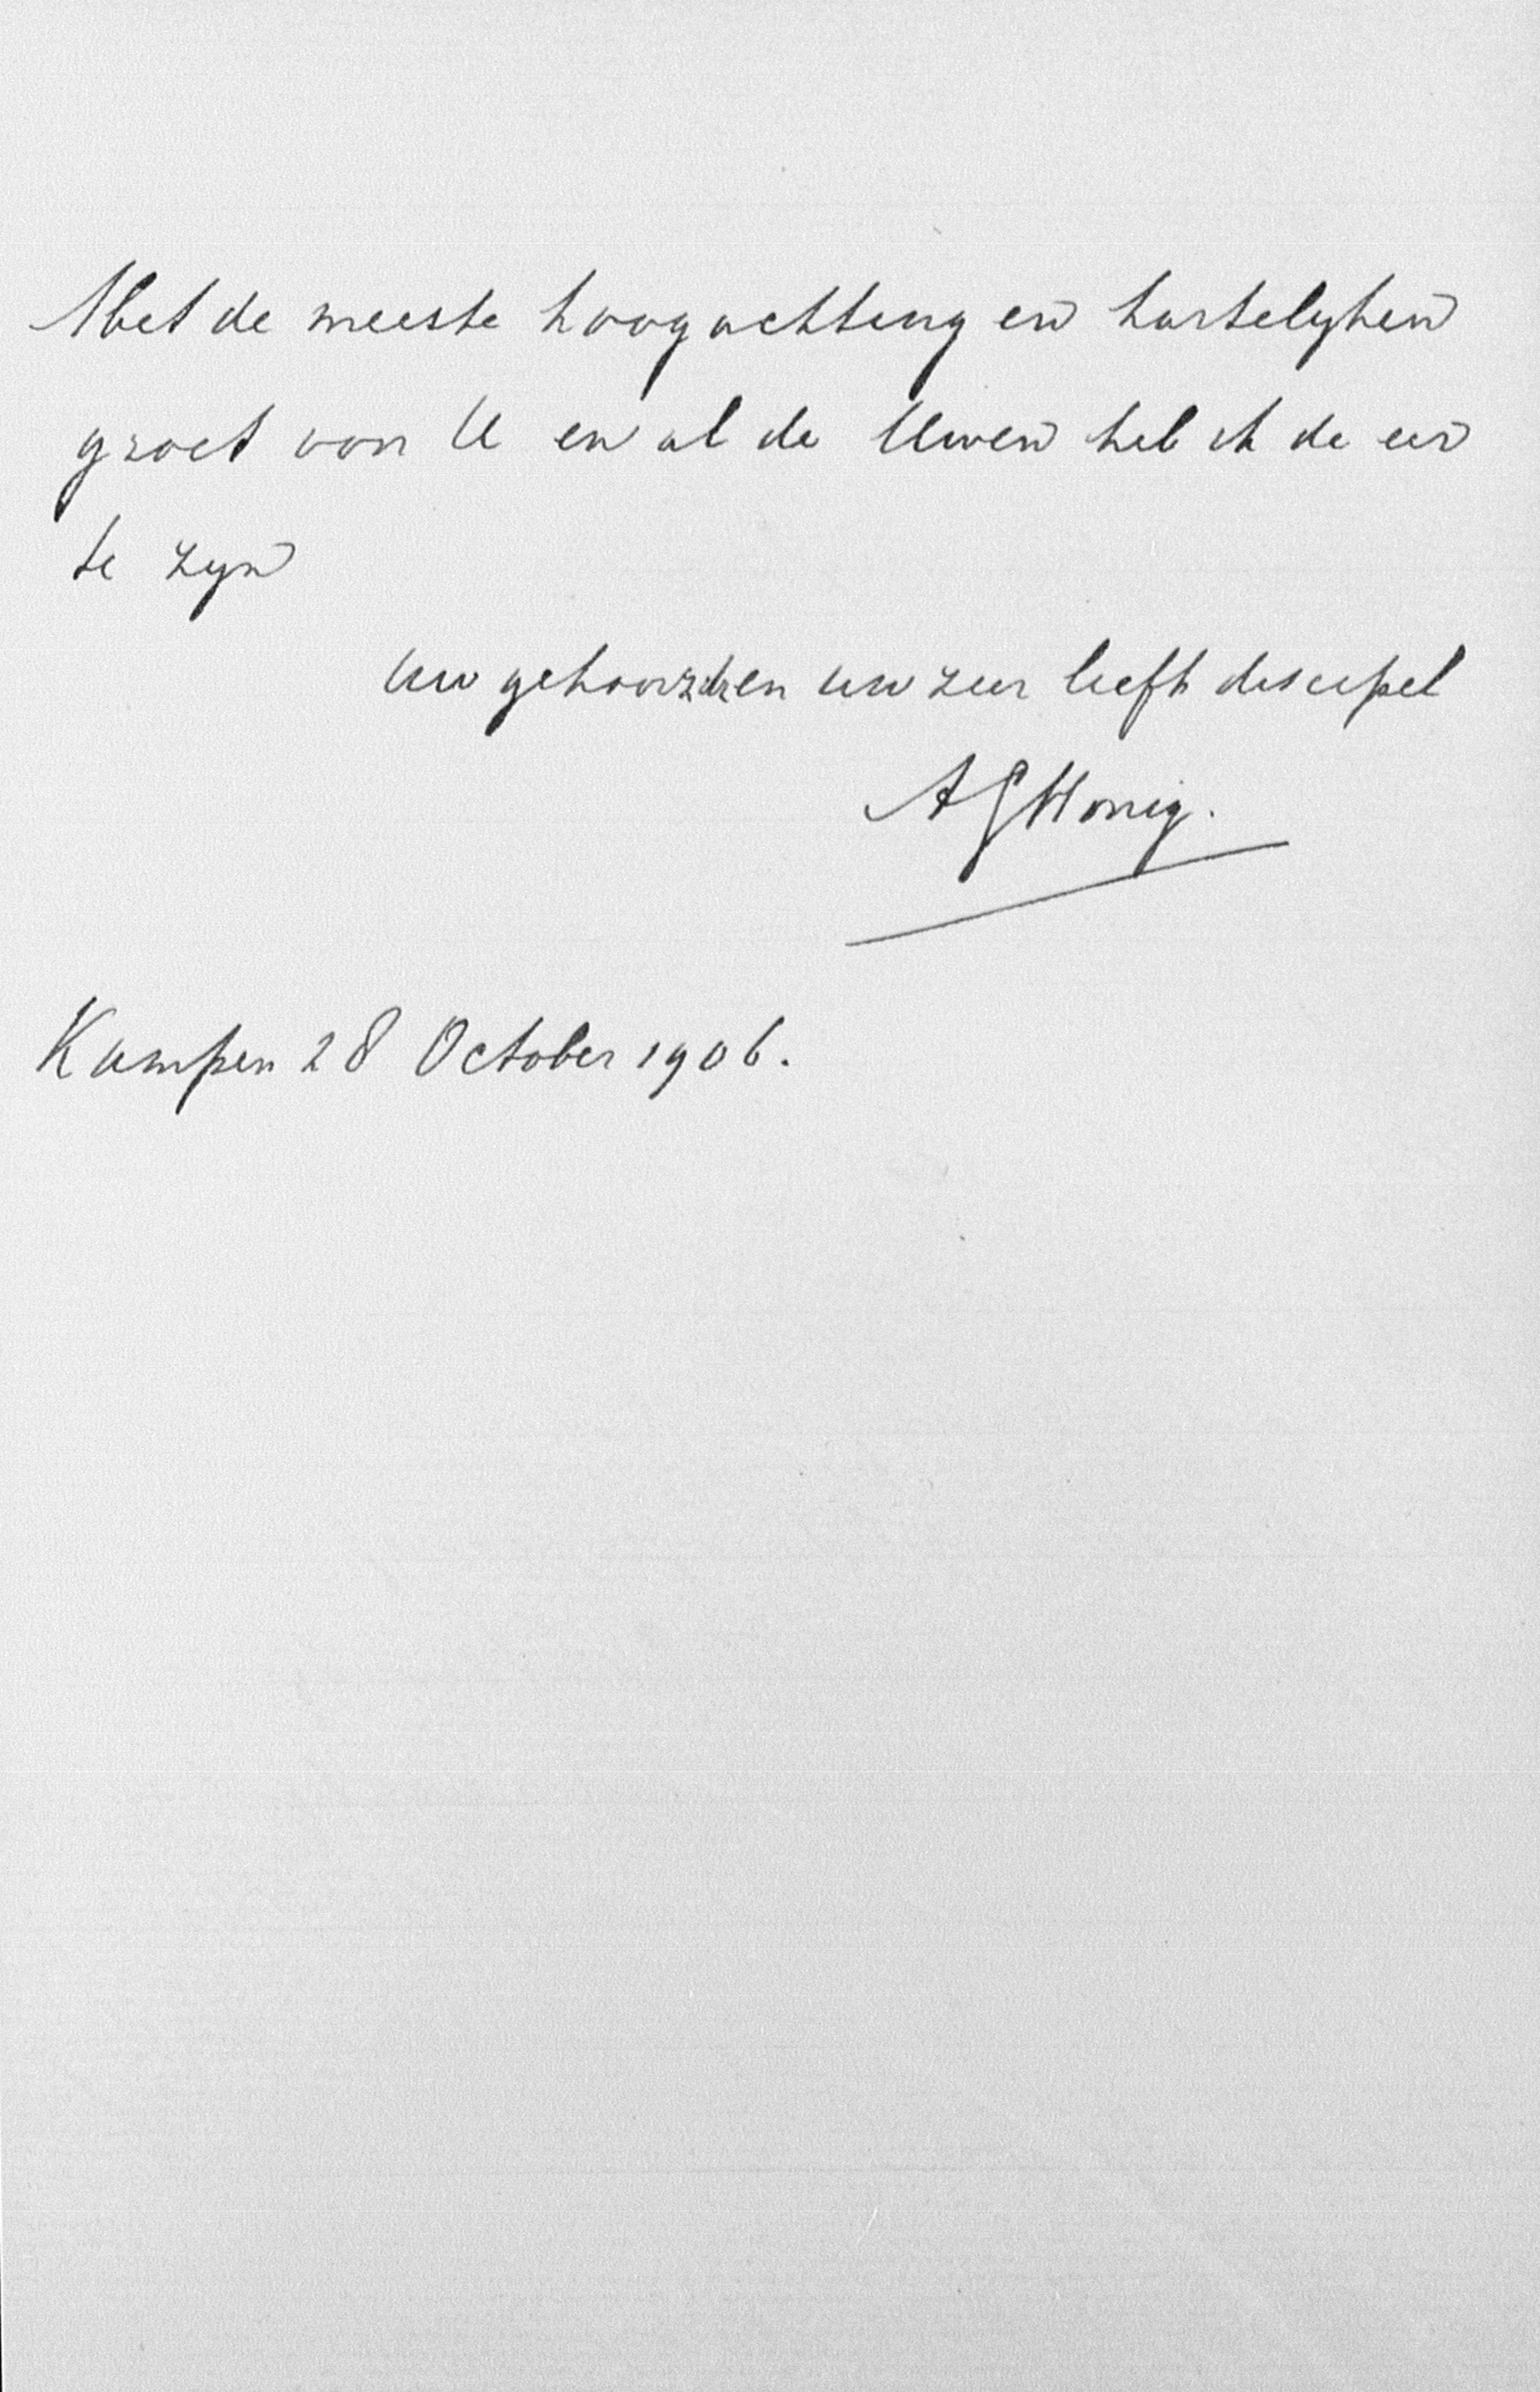 Met de meeste hoogachting en hartelyken
groet voor U en al de Uwen heb ik de eer
te zyn
Uw gehoorz en uw zeer liefh discipel
AGHonig.
Kampen 28 October 1906.